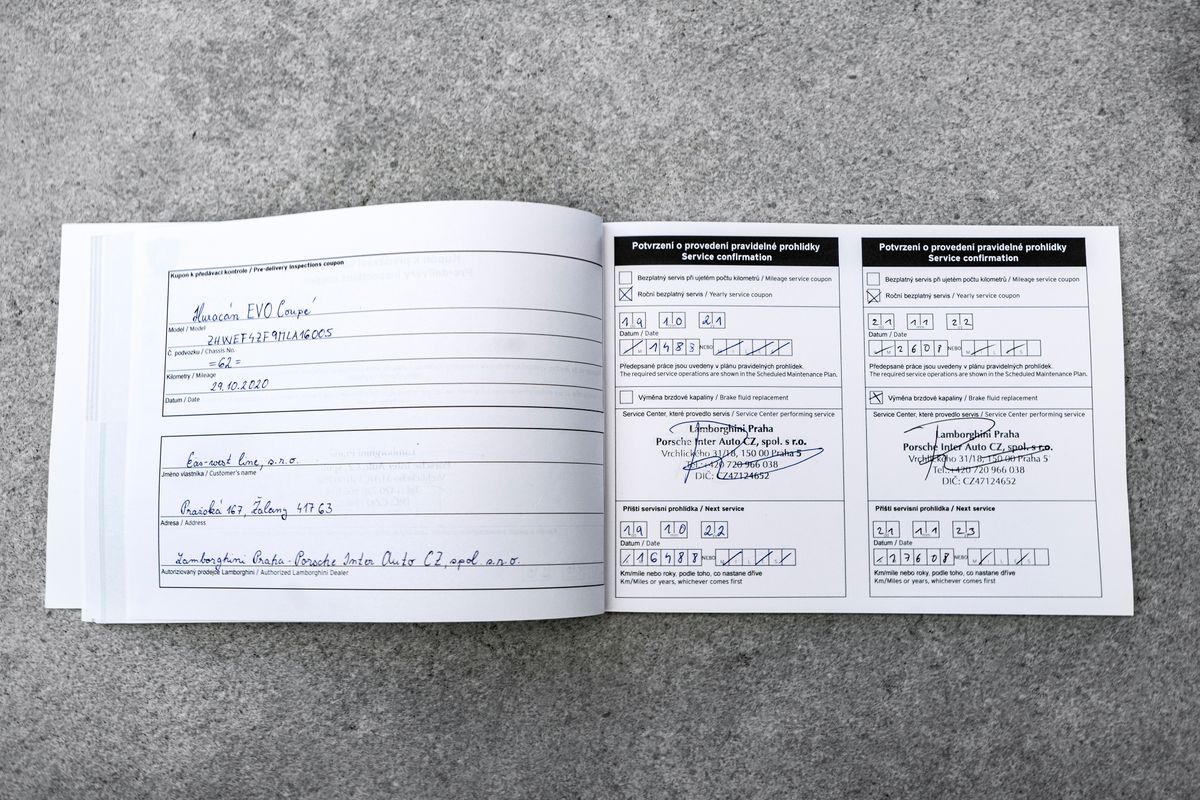 Kupon k předávací kontrole / Pre-delivery inspections coupon
Huracán EVO Coupé
Model / Model
ZHWEF4ZF9MLA16005
Č. podvozku / Chassis No.
=62=
Kilometry / Mileage
29.10.2020
Datum / Date
Eas-west line, s.r.o.
Jméno vlastníka / Customer's name
Pražská 167, Žalany 417 63
Adresa / Address
Lamborghini Praha-Porsche Inter Auto CZ, spol. s.r.o.
Autorizovaný prodejce Lamborghini / Authorized Lamborghini Dealer
Potvrzení o provedení pravidelné prohlídky
Service confirmation
Bezplatný servis při ujetém počtu kilometrů / Mileage service coupon
Roční bezplatný servis / Yearly service coupon
19 10 21
Datum / Date
1483 NEBO
Předepsané práce jsou uvedeny v plánu pravidelných prohlídek.
The required service operations are shown in the Scheduled Maintenance Plan.
Výměna brzdové kapaliny / Brake fluid replacement
Service Center, které provedlo servis / Service Center performing service
Lamborghini Praha
Porsche Inter Auto CZ, spol. s r.o.
Vrchlického 31/18, 150 00 Praha 5
Tel.: +420 720 966 038
DIČ: CZ47124652
Příští servisní prohlídka / Next service
19 10 22
Datum / Date
16488 NEBO
Km/míle nebo roky, podle toho, co nastane dříve
Km/Miles or years, whichever comes first
Potvrzení o provedení pravidelné prohlídky
Service confirmation
Bezplatný servis při ujetém počtu kilometrů / Mileage service coupon
Roční bezplatný servis / Yearly service coupon
21 11 22
Datum / Date
2608 NEBO
Předepsané práce jsou uvedeny v plánu pravidelných prohlídek.
The required service operations are shown in the Scheduled Maintenance Plan.
Výměna brzdové kapaliny / Brake fluid replacement
Service Center, které provedlo servis / Service Center performing service
Lamborghini Praha
Porsche Inter Auto CZ, spol. s r.o.
Vrchlického 31/18, 150 00 Praha 5
Tel.: +420 720 966 038
DIČ: CZ47124652
Příští servisní prohlídka / Next service
21 11 23
Datum / Date
17608 NEBO
Km/míle nebo roky, podle toho, co nastane dříve
Km/Miles or years, whichever comes first